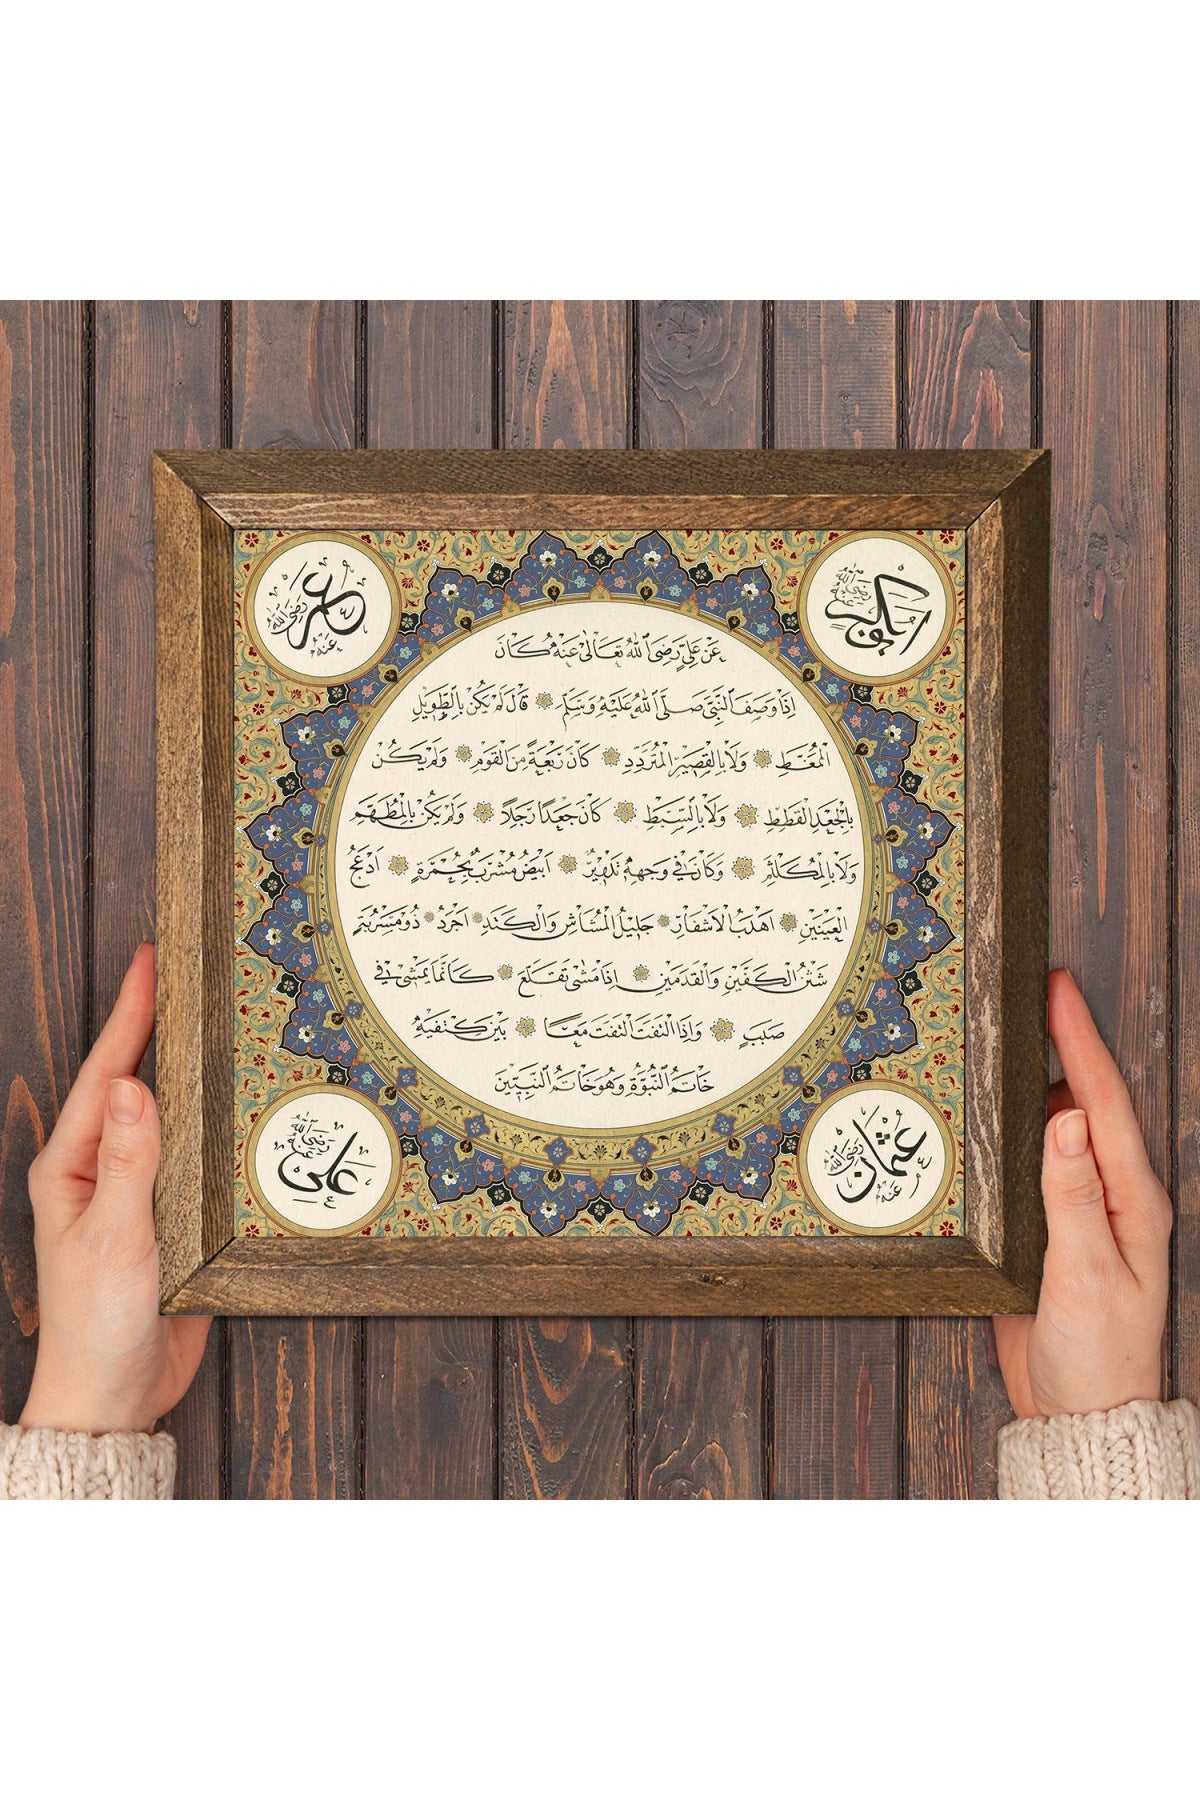 ابو بكر رضي الله عنه
عمر رضي الله عنه
عَنْ عَلِيٍّ رَضِيَ اللهُ تَعَالٰى عَنْهُ كَانَ
اِذَا وَصَفَ النَّبِيَّ صَلَّى اللهُ عَلَيْهِ وَسَلَّمَ قَالَ لَمْ يَكُنْ بِالطَّوِيلِ
الْمُمَّغِطِ وَلَا بِالْقَصِيرِ الْمُتَرَدِّدِ كَانَ رَبْعَةً مِنَ الْقَوْمِ وَلَمْ يَكُنْ
بِالْجَعْدِ الْقَطِطِ وَلَا بِالسَّبِطِ كَانَ جَعْدًا رَجِلًا وَلَمْ يَكُنْ بِالْمُطَهَّمِ
وَلَا بِالْمُكَلْثَمِ وَكَانَ فِي وَجْهِهِ تَدْوِيرٌ اَبْيَضُ مُشْرَبٌ بِحُمْرَةٍ اَدْعَجُ
الْعَيْنَيْنِ اَهْدَبُ الْاَشْفَارِ جَلِيلُ الْمُشَاشِ وَالْكَتَدِ اَجْرَدُ ذُو مَسْرُبَةٍ
شَثْنُ الْكَفَّيْنِ وَالْقَدَمَيْنِ اِذَا مَشٰى تَقَلَّعَ كَاَنَّمَا يَمْشِي فِي
صَبَبٍ وَاِذَا الْتَفَتَ الْتَفَتَ مَعًا بَيْنَ كَتِفَيْهِ
خَاتَمُ النُّبُوَّةِ وَهُوَ خَاتَمُ النَّبِيِّينَ
عثمان رضي الله عنه
علي رضي الله عنه